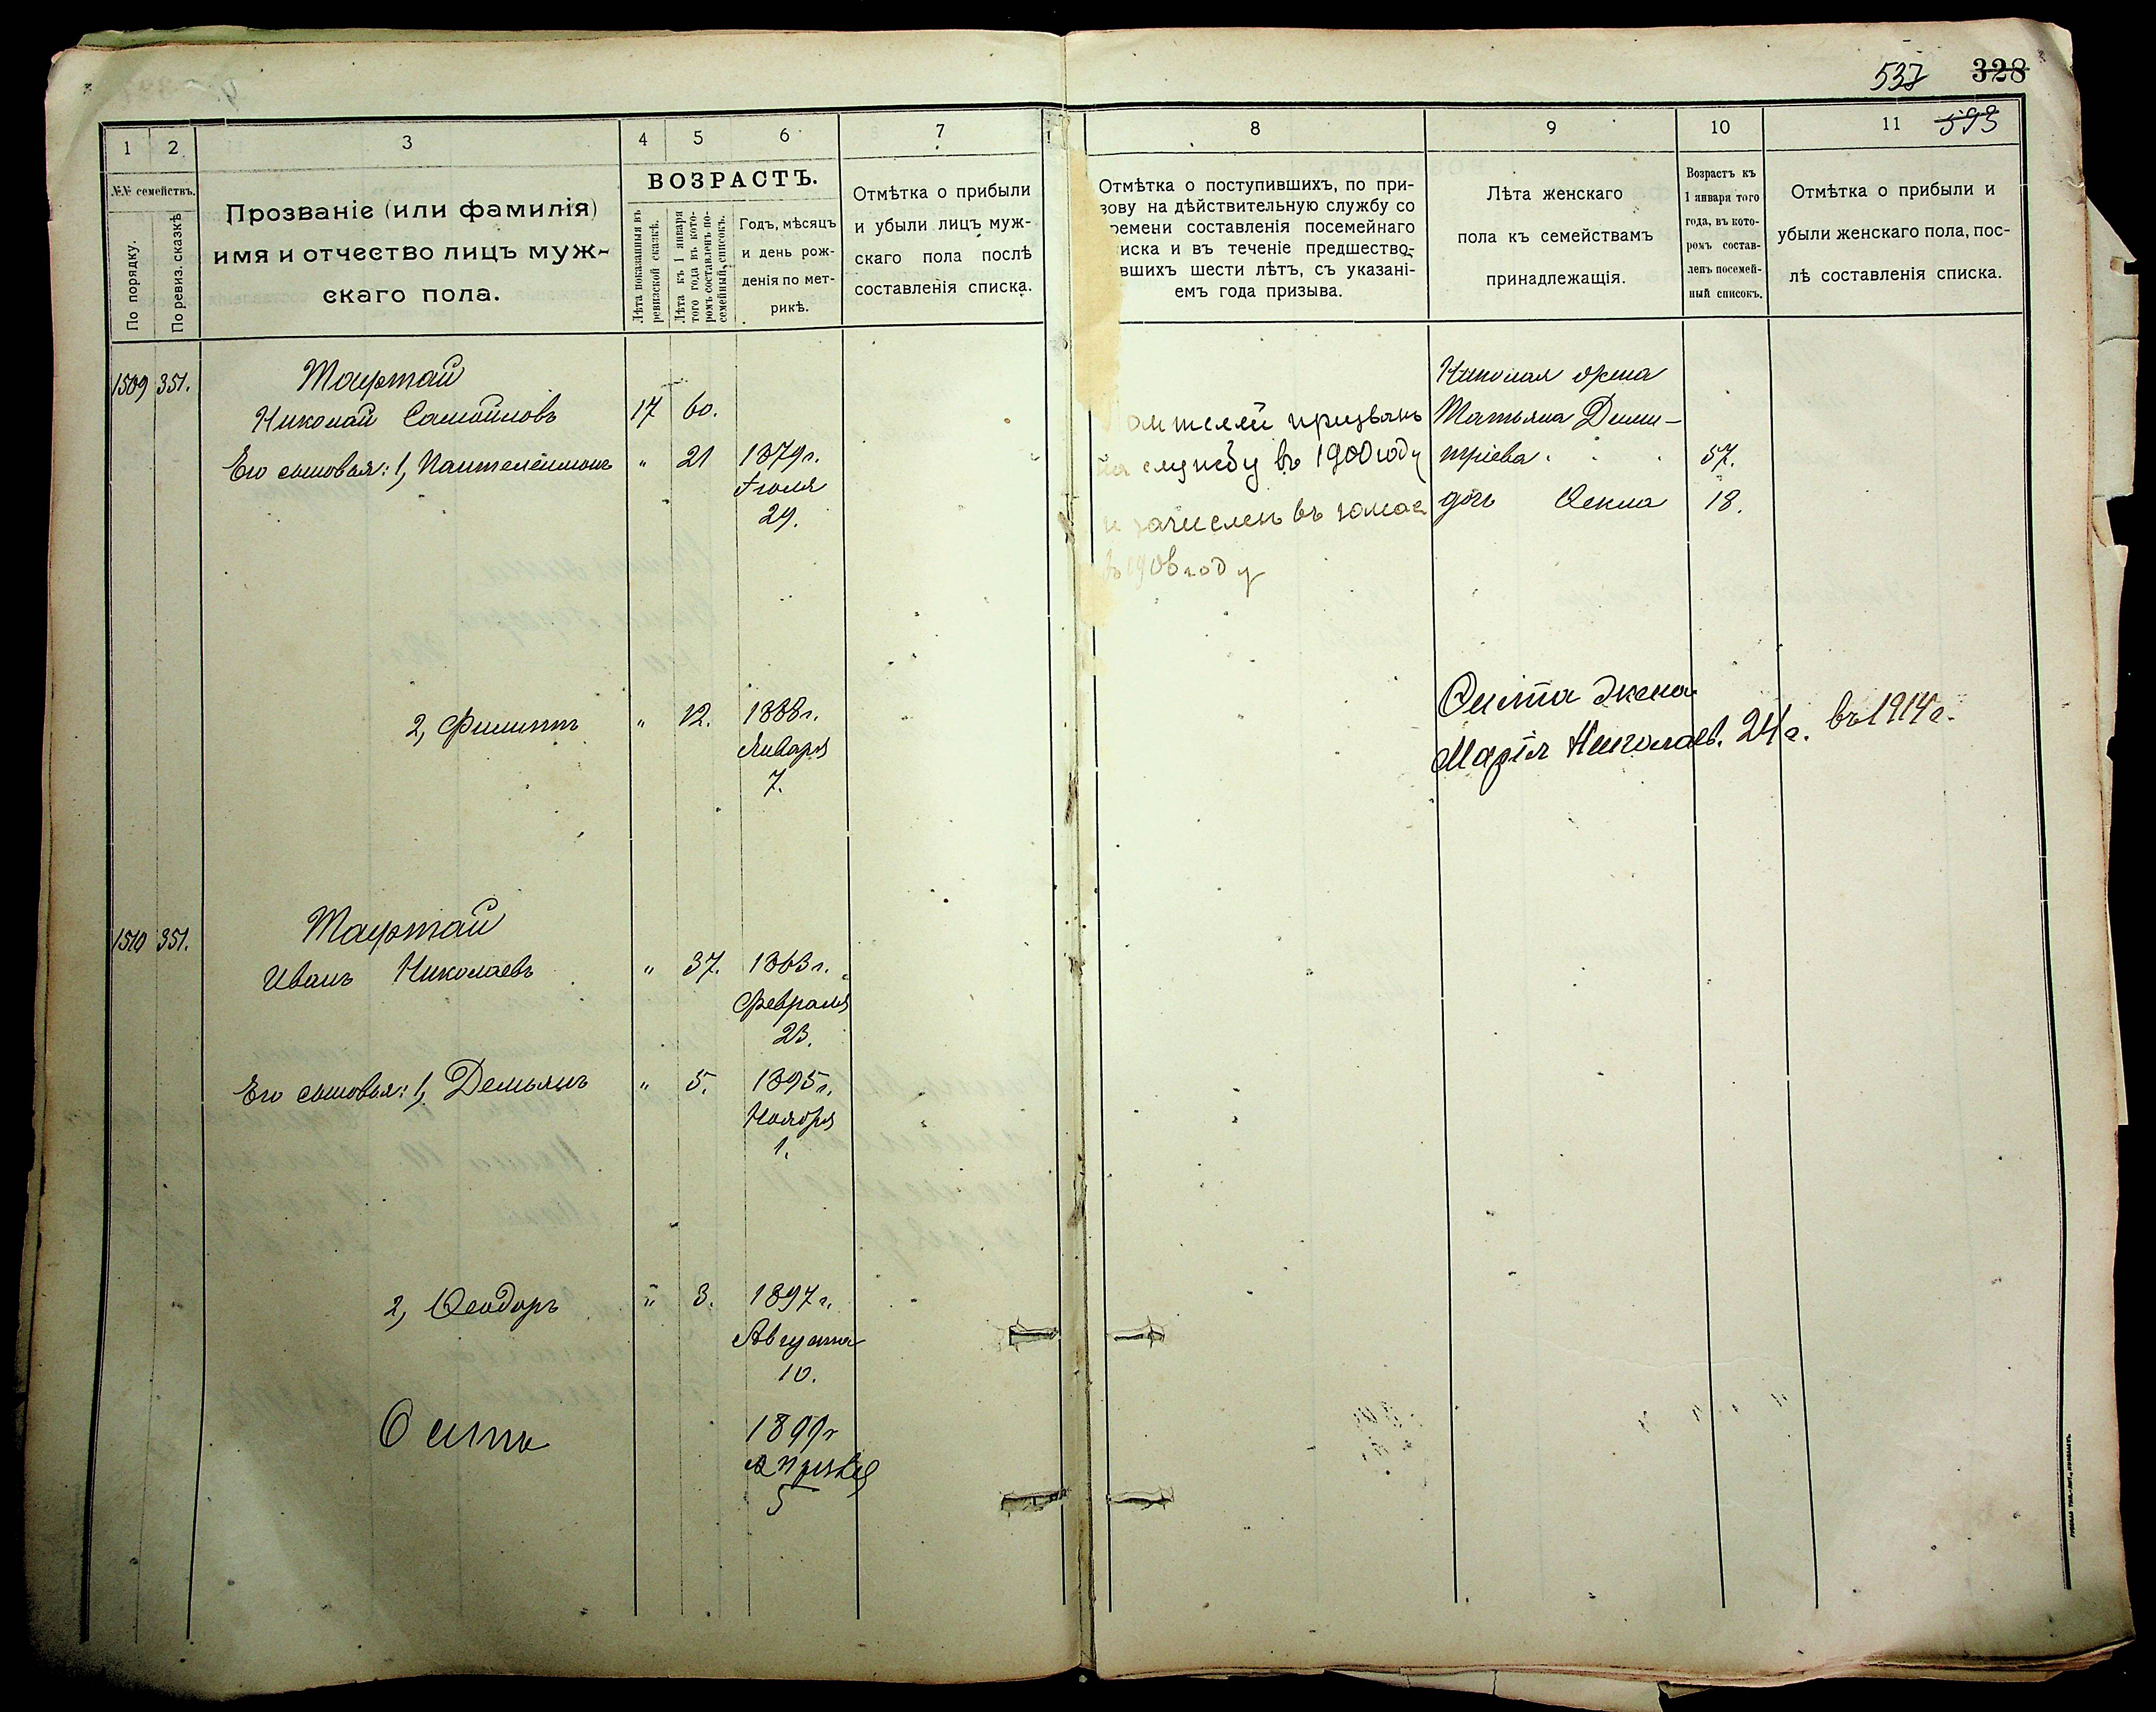 537 328
1 2 3 4 5 6 7
8 9 10 11 593
№№ семействъ.
По порядку.
По ревиз. сказкѣ
Прозваніе (или фамилія)
имя и отчество лицъ муж-
скаго пола.
ВОЗРАСТЪ.
Лѣта показанныя въ
ревизской сказкѣ.
Лѣта къ 1 января
того года въ кото-
ромъ составленъ по-
семейный списокъ.
Годъ, мѣсяцъ
и день рож-
денія по мет-
рикѣ.
Отмѣтка о прибыли
и убыли лицъ муж-
скаго пола послѣ
составленія списка.
Отмѣтка о поступившихъ, по при-
зову на дѣйствительную службу со
ремени составленія посемейнаго
иска и въ теченіе предшество-
вшихъ шести лѣтъ, съ указані-
емъ года призыва.
Лѣта женскаго
пола къ семействамъ
принадлежащія.
Возрастъ къ
1 января того
года, въ кото-
ромъ состав-
ленъ посемей-
ный списокъ.
Отмѣтка о прибыли и
убыли женскаго пола, пос-
лѣ составленія списка.
1509 351. Тафтай
Николай Самойловъ 17 60.
Его сыновья: 1, Пантелеймонъ " 21 1879г.
Іюля
29.
призванъ
на службу въ 1900 году
и зачисленъ въ
въ 1906 году
Николая жена
Татьяна Дими-
тріева 57.
дочь Ѳекла 18.
2, Филиппъ " 12. 1888г.
Января
7.
жена
Марія Николаев. 24г. въ 1914г.
1510 351. Тафтай
Иванъ Николаевъ " 37. 1863г.
Февраля
23.
Его сыновья: 1, Демьянъ " 5. 1895г.
Ноября
1.
2, Ѳеодоръ " 3. 1897г.
Августа
10.
Осипъ 1899г
Апрѣля
5